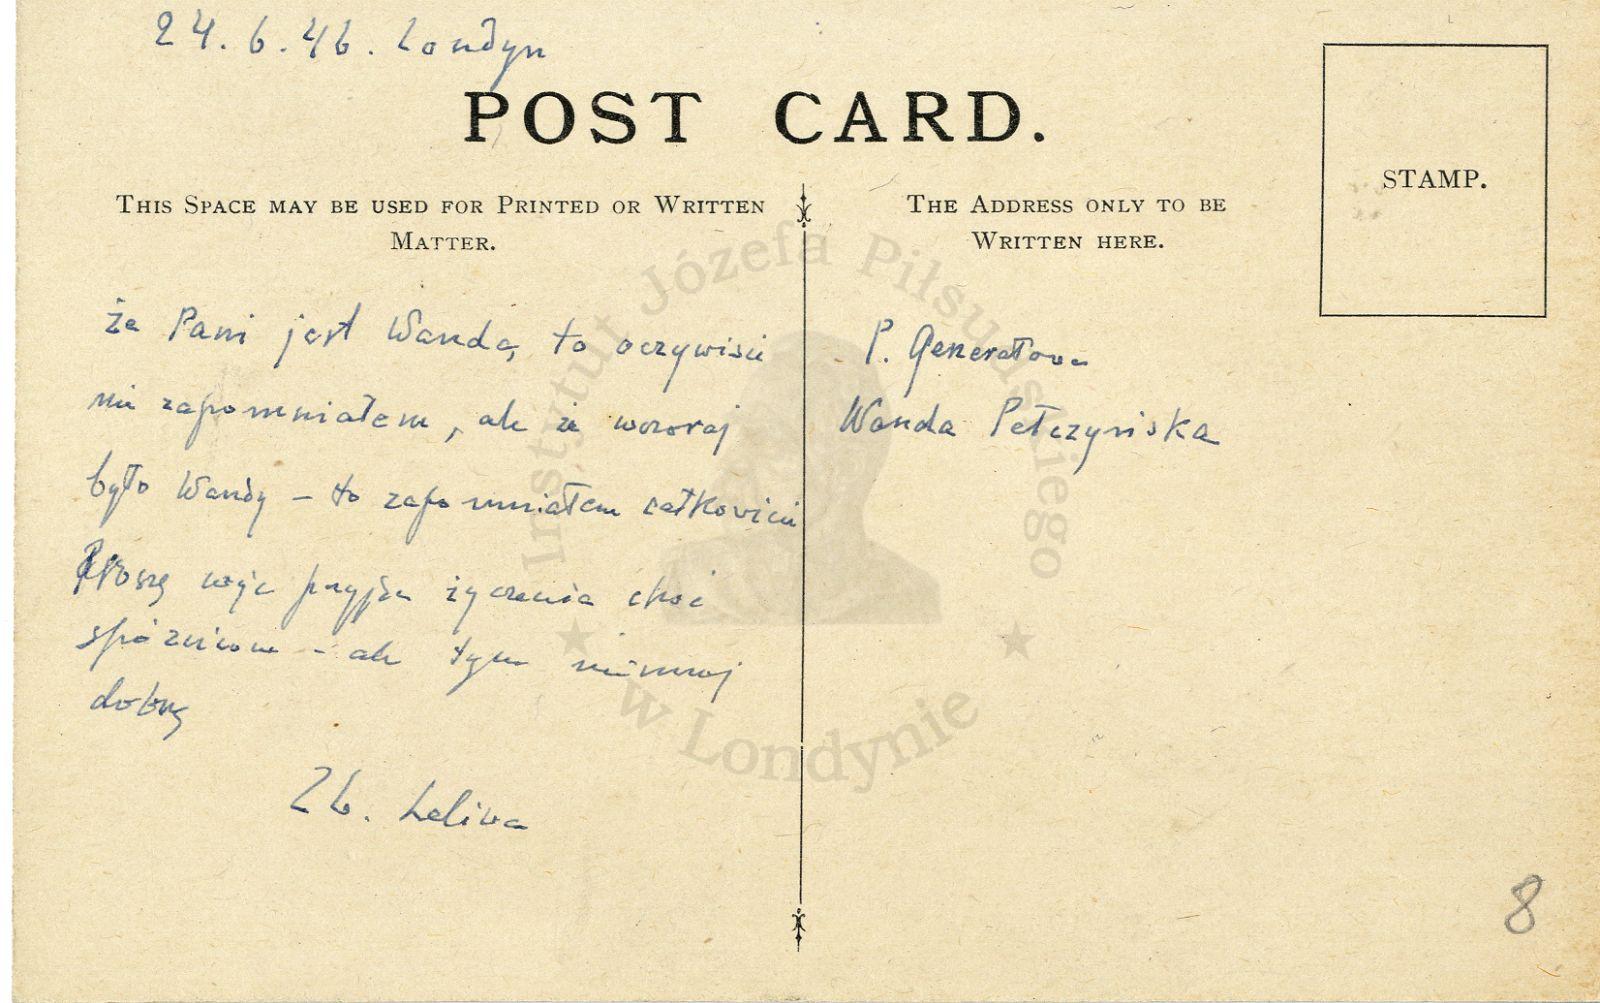 24.6.46. Londyn
POST CARD.
THIS SPACE MAY BE USED FOR PRINTED OR WRITTEN
MATTER.
że Pani jest Wanda, to oczywiście
nie zapomniałem, ale że wczoraj
było Wandy – to zapomniałem całkowicie
Proszę więc przyjąć życzenia choć
spóźnione – ale tym niemniej
dobre
Zb. Leliwa
THE ADDRESS ONLY TO BE
WRITTEN HERE.
P. Generałowa
Wanda Pełczyńska
STAMP.
8
Instytut Józefa Piłsudskiego
w Londynie